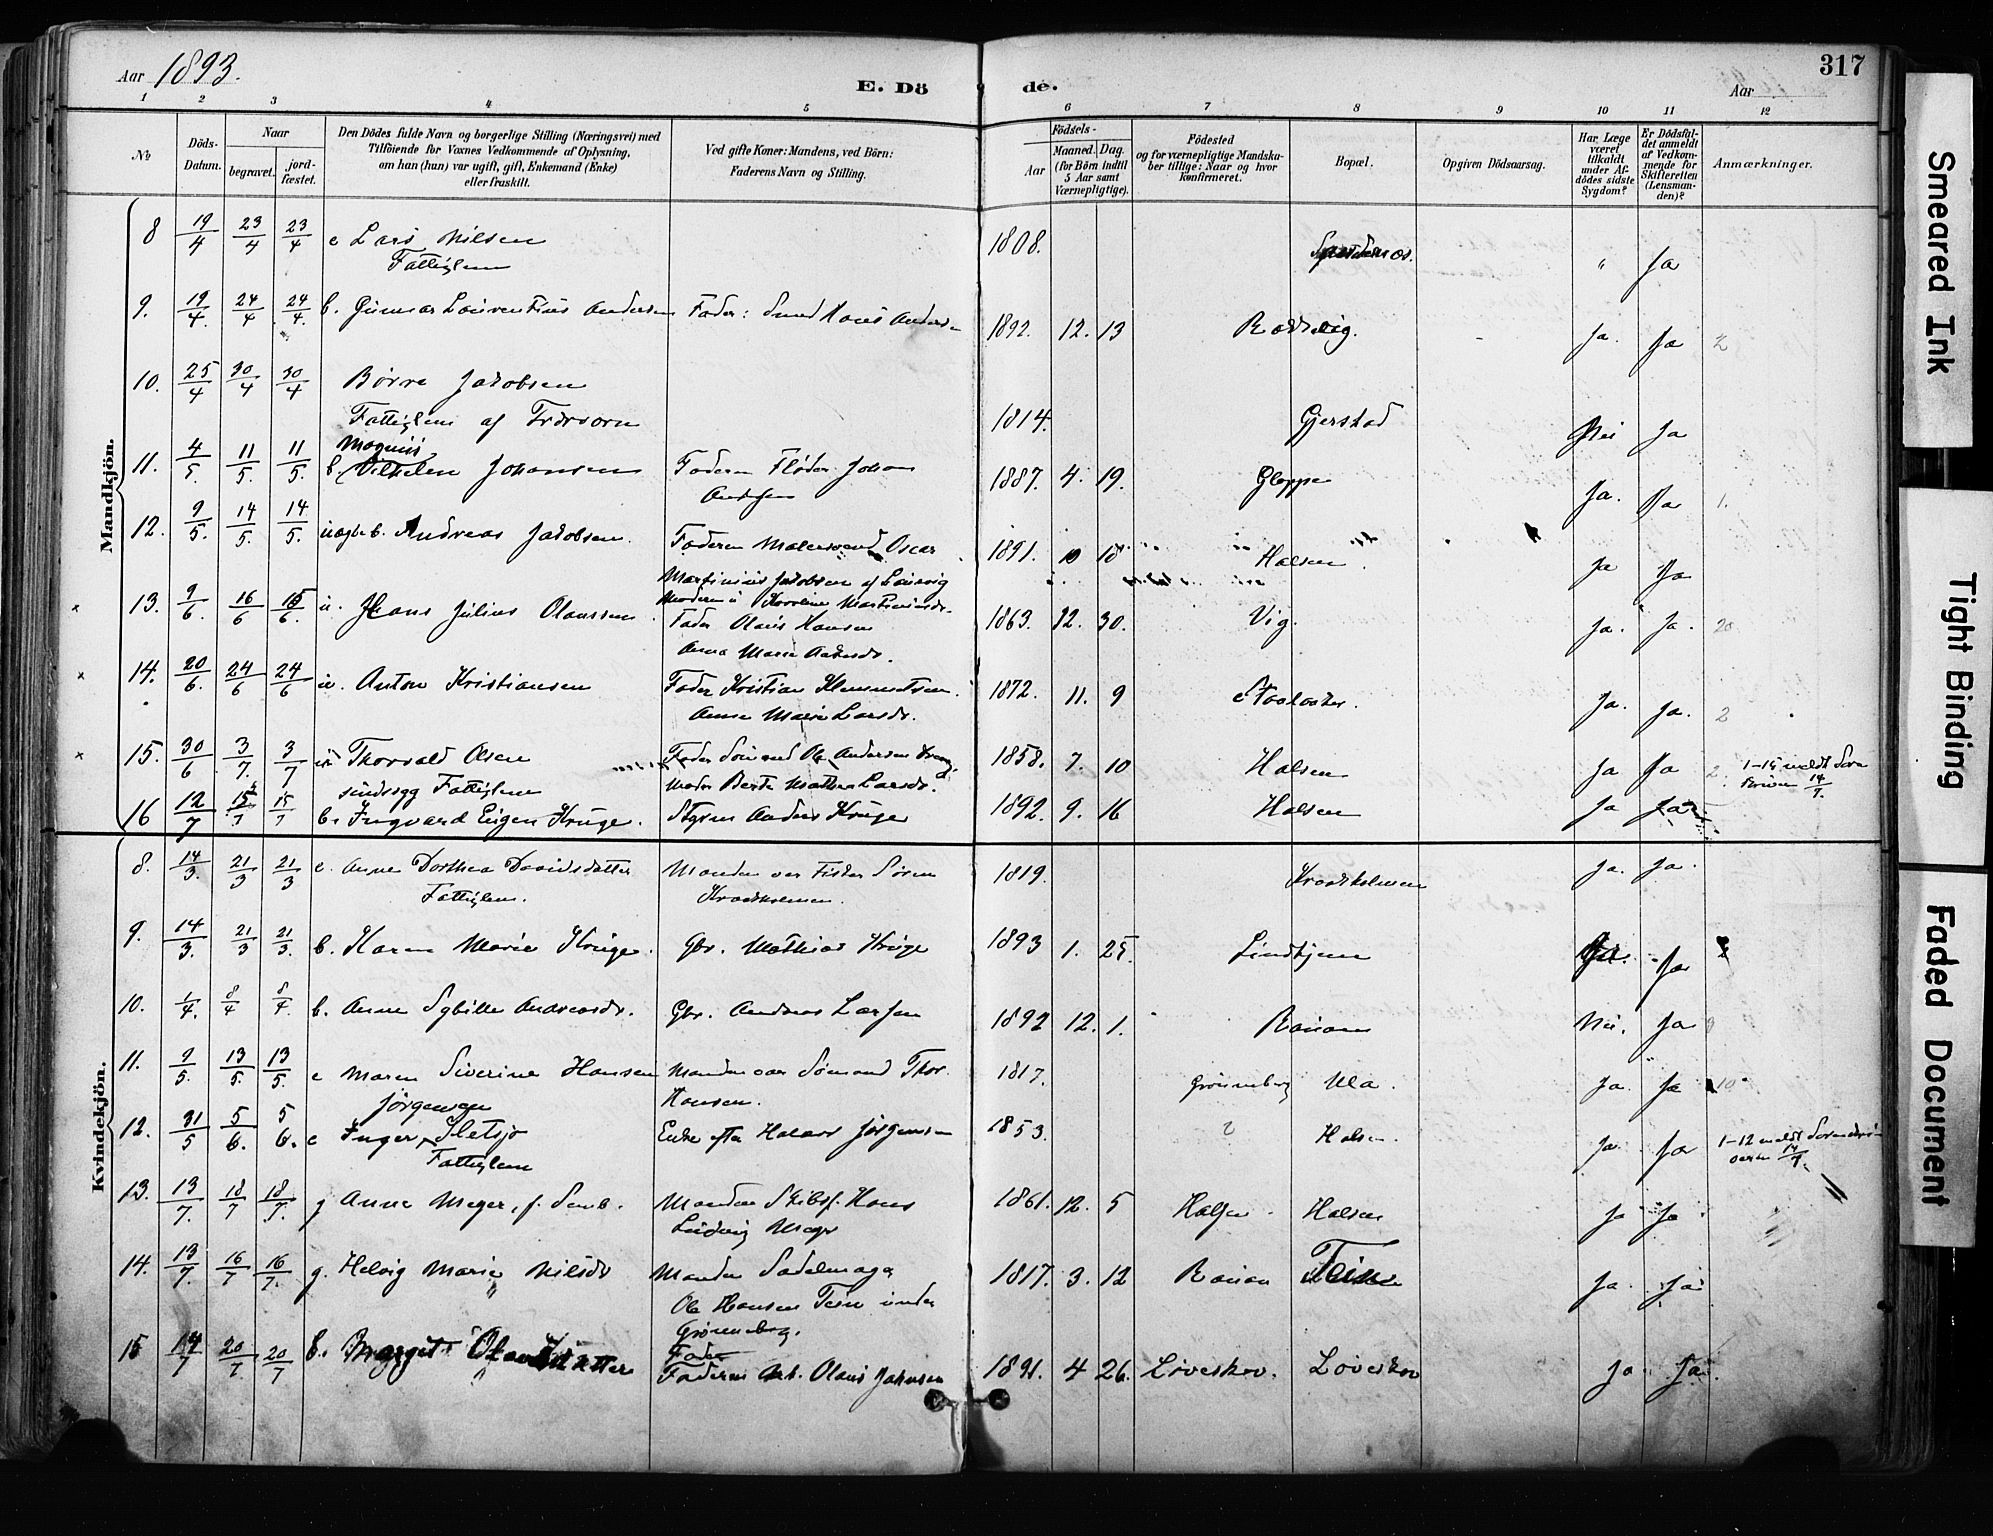 Aar 1893.
E. Döde.
Aar
317
1 2 3 4 5 6 7 8 9 10 11 12
№
Döds-Datum.
Naar
begravet.
jordfæstet.
Den Dödes fulde Navn og borgerlige Stilling (Næringsvei) med
Tilföiende for Voxnes Vedkommende af Oplysning,
om han (hun) var ugift, gift, Enkemand (Enke)
eller fraskilt.
Ved gifte Koner: Mandens, ved Börn:
Faderens Navn og Stilling.
Födsels-
Aar
Maaned. Dag.
(for Börn indtil
5 Aar samt
Værnepligtige).
Födested
og for værnepligtige Mandskaber tillige: Naar og hvor
konfirmeret.
Bopæl.
Opgiven Dödsaarsag.
Har Læge
været
tilkaldt
under Afdödes sidste
Sygdom?
Er Dödsfaldet anmeldt
af Vedkommende for
Skifteretten
(Lensmanden)?
Anmærkninger.
Mandkjön.
8 19/4 23/4 23/4 e Lars Nilsen 1808. " Ja
Fattiglem
9. 19/4. 24/4 24/4. b. Gunnar Laurentius Andersen Fader: Smed Hans Andersen 1892. 12. 13 Rødsvig. Ja. Ja 2
10. 25/4 30/4 30/4 Børre Jakobsen
Fattiglem af Fredværn 1814. Gjerstad Nei Ja
Magnus
11. 4/5. 11/5. 11/5. b. Vilhelm Johansen Faderen Fløder Johan 1887. 4. 19. Gloppe Ja. Ja 1.
12. 9/5. 14/5. 14/5. uægte b. Andreas Jakobsen Faderen Malersvend Oscar 1891. 10 18 Halsen Ja Ja
Martinius Jakobsen af Laurvig
Moderen u Karoline
13. 9/6. 16/6 16/6. u. Hans Julius Olaussen Fader Olaus Hansen 1863. 12. 30. Vig. Ja. Ja. 20
Anna Marie
14. 20/6. 24/6 24/6 u. Anton Kristiansen Fader Kristian Klemmetsen 1872. 11. 9 Ja. Ja. 2
Anne Marie Larsdr.
15. 30/6 3/7. 3/7 u Thorvald Olsen Fader Sømand Ole Andersen 1858. 7. 10 Halsen Ja Ja 2 1-15 meldt Soren
sindssyg Fattiglem Moder Berte Mathea Larsdr. skriver 14/7.
16 12/7 15/7 15/7 b. Ingvard Eugen Krüge. Styrm Anders Krüge 1892. 9. 16 Halsen Ja Ja
Kvindekjön.
8. 14/3. 21/3 21/3 e. Anne Dorthea Davidsdatter Manden var Fisker Søren 1819. Kraakholmen Ja. Ja.
Fattiglem. Kraakholmen.
9. 14/3. 21/3 21/3. b. Karen Marie Krüge. Gbr. Mathias Krüge 1893 1. 25. Lindhjem Ja. Ja
10. 1/4. 8/4 8/4. b. Anne Sybille Andreasdr. Gbr. Andreas Larsen 1892 12. 1. Rauan Nei. Ja
11. 9/5. 13/5. 13/5. e Maren Siverine Hansen Manden var Sømand Thor. 1817. Grønneberg Ula. Ja. Ja 10
Hansen.
Jørgensen
12. 31/5 5/6. 5/6. e Inger Sletsjø Enke efter Halvor Jørgensen 1853. ? Halsen. Ja. Ja 1-12 meldt Sorenskri-
Fattiglem veren 14/7.
13. 13/7. 18/7 18/7. g Anne Meyer, f. Manden Skibsf. Hans 1861. 12. 5 Halsen. Halsen Ja Ja
Ludvig Meyer
14. 13/7. 16/7 16/7. g. Helvig Marie Nilsdr Manden Sadelmager 1817. 3. 12 Rauan Ja. Ja
Ole Hansen Tein under
Grønneberg.
Fader
15 14/7 20/7 20/7 b. Margit Faderen Arb. Olaus Johnsen 1891. 4 26. Løveskov. Løveskov Ja Ja.
Smeared Ink
Tight Binding
Faded Document